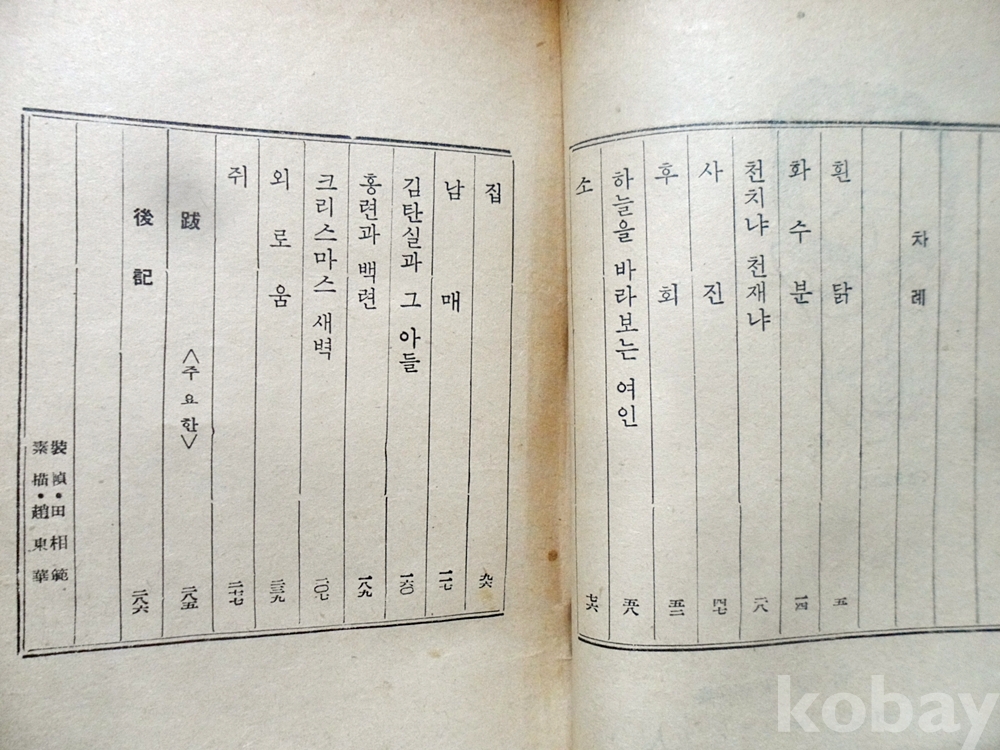 차례
흰 닭 五
화수분 一四
천치냐 천재냐 二八
사진 四七
후회 五二
하늘을 바라보는 여인 五八
소 七六
집 九六
남매 一一七
김탄실과 그 아들 一六〇
홍련과 백련 一八九
크리스마스 새벽 二〇七
외로움 二三九
쥐
跋 <주요한> 二八五
後記 二八六
裝幀·田相範
素描·趙東華
kobay